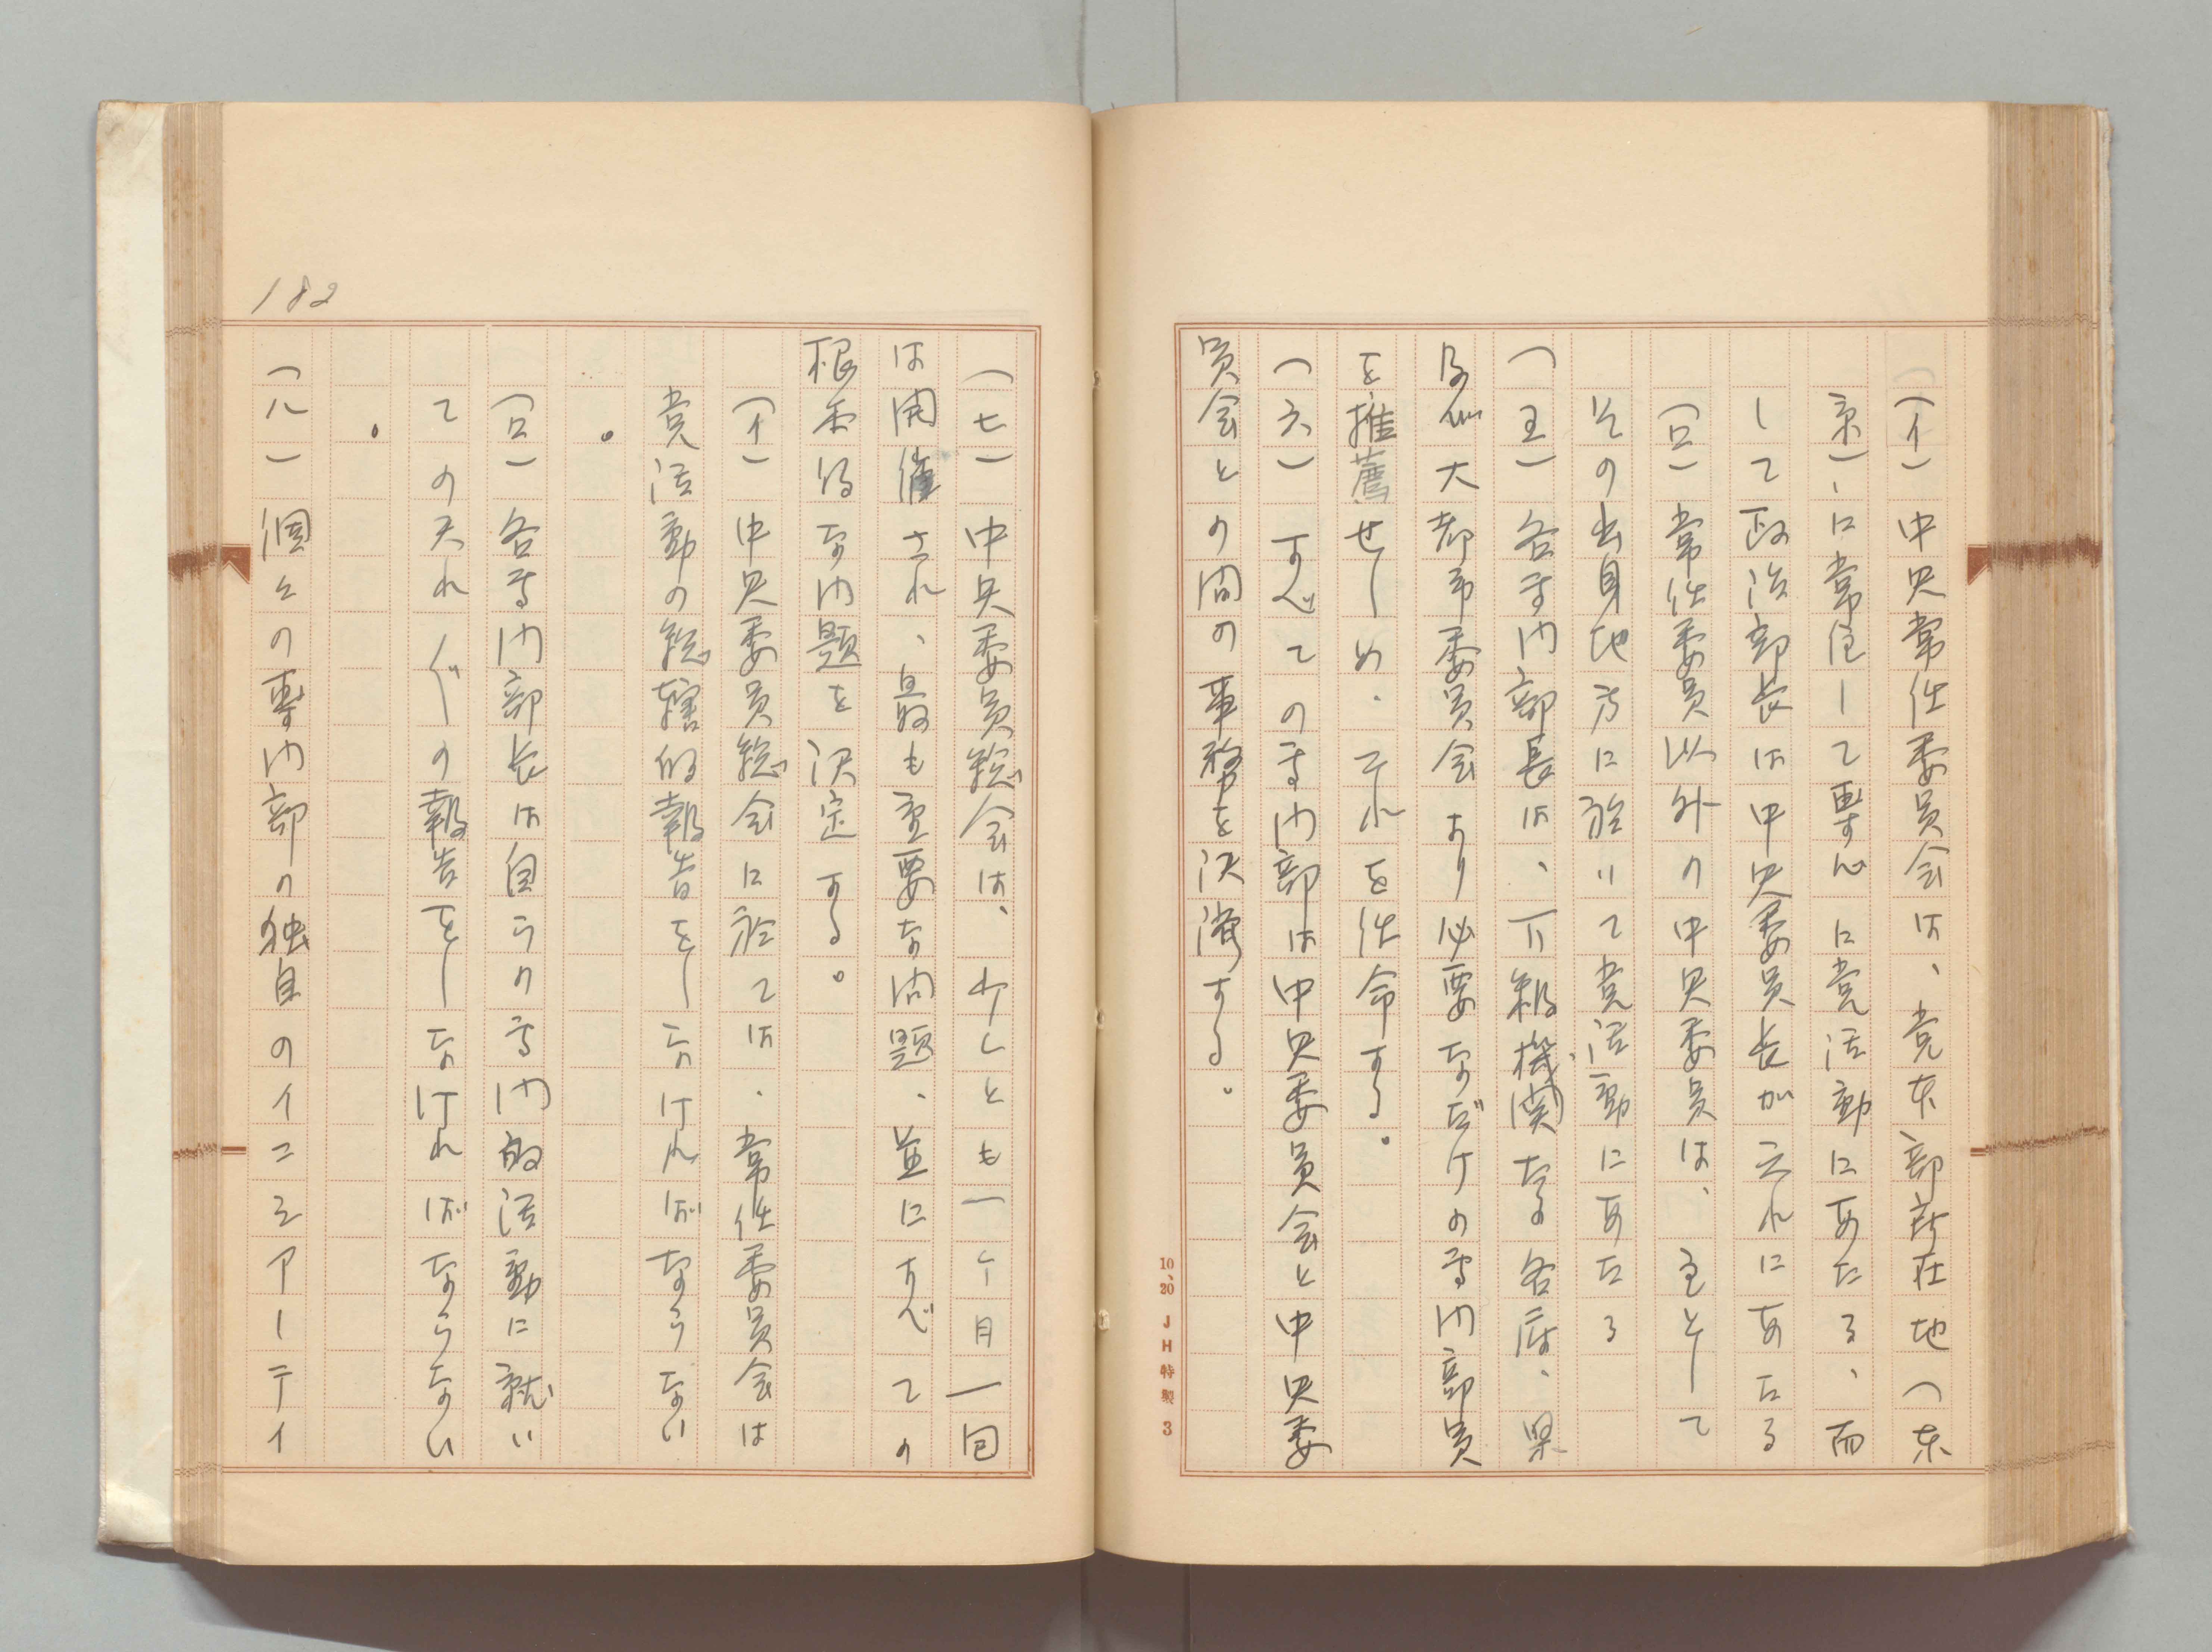 (イ) 中央常任委員会は、党本部所在地(東
京)、に常住して専心に党活動にあたる、而
して政治部長は中央委員長が之れにあたる
(ロ) 常任委員以外の中央委員は、主として
その出身地方に於いて党活動にあたる
(五) 各専門部長は、下級機関なる各府、県
及び大都市委員会より必要なだけの専門部員
を推薦せしめ、それを任命する。
(六) すべての専門部は中央委員会と中央委
員会との間の事務を決済する。
10、20 JH特製 3
182
(七) 中央委員総会は、少くとも一ケ月一回
は開催され、最も重要な問題、並にすべての
根本的な問題を決定する。
(イ) 中央委員総会に於ては、常任委員会は
党活動の総轄的報告をしなければならない
。
(ロ) 各専門部長は自らの専門的活動に就い
ての夫れ〴〵の報告をしなければならない
。
(八) 個々の専門部の独自のイニシアーテイ